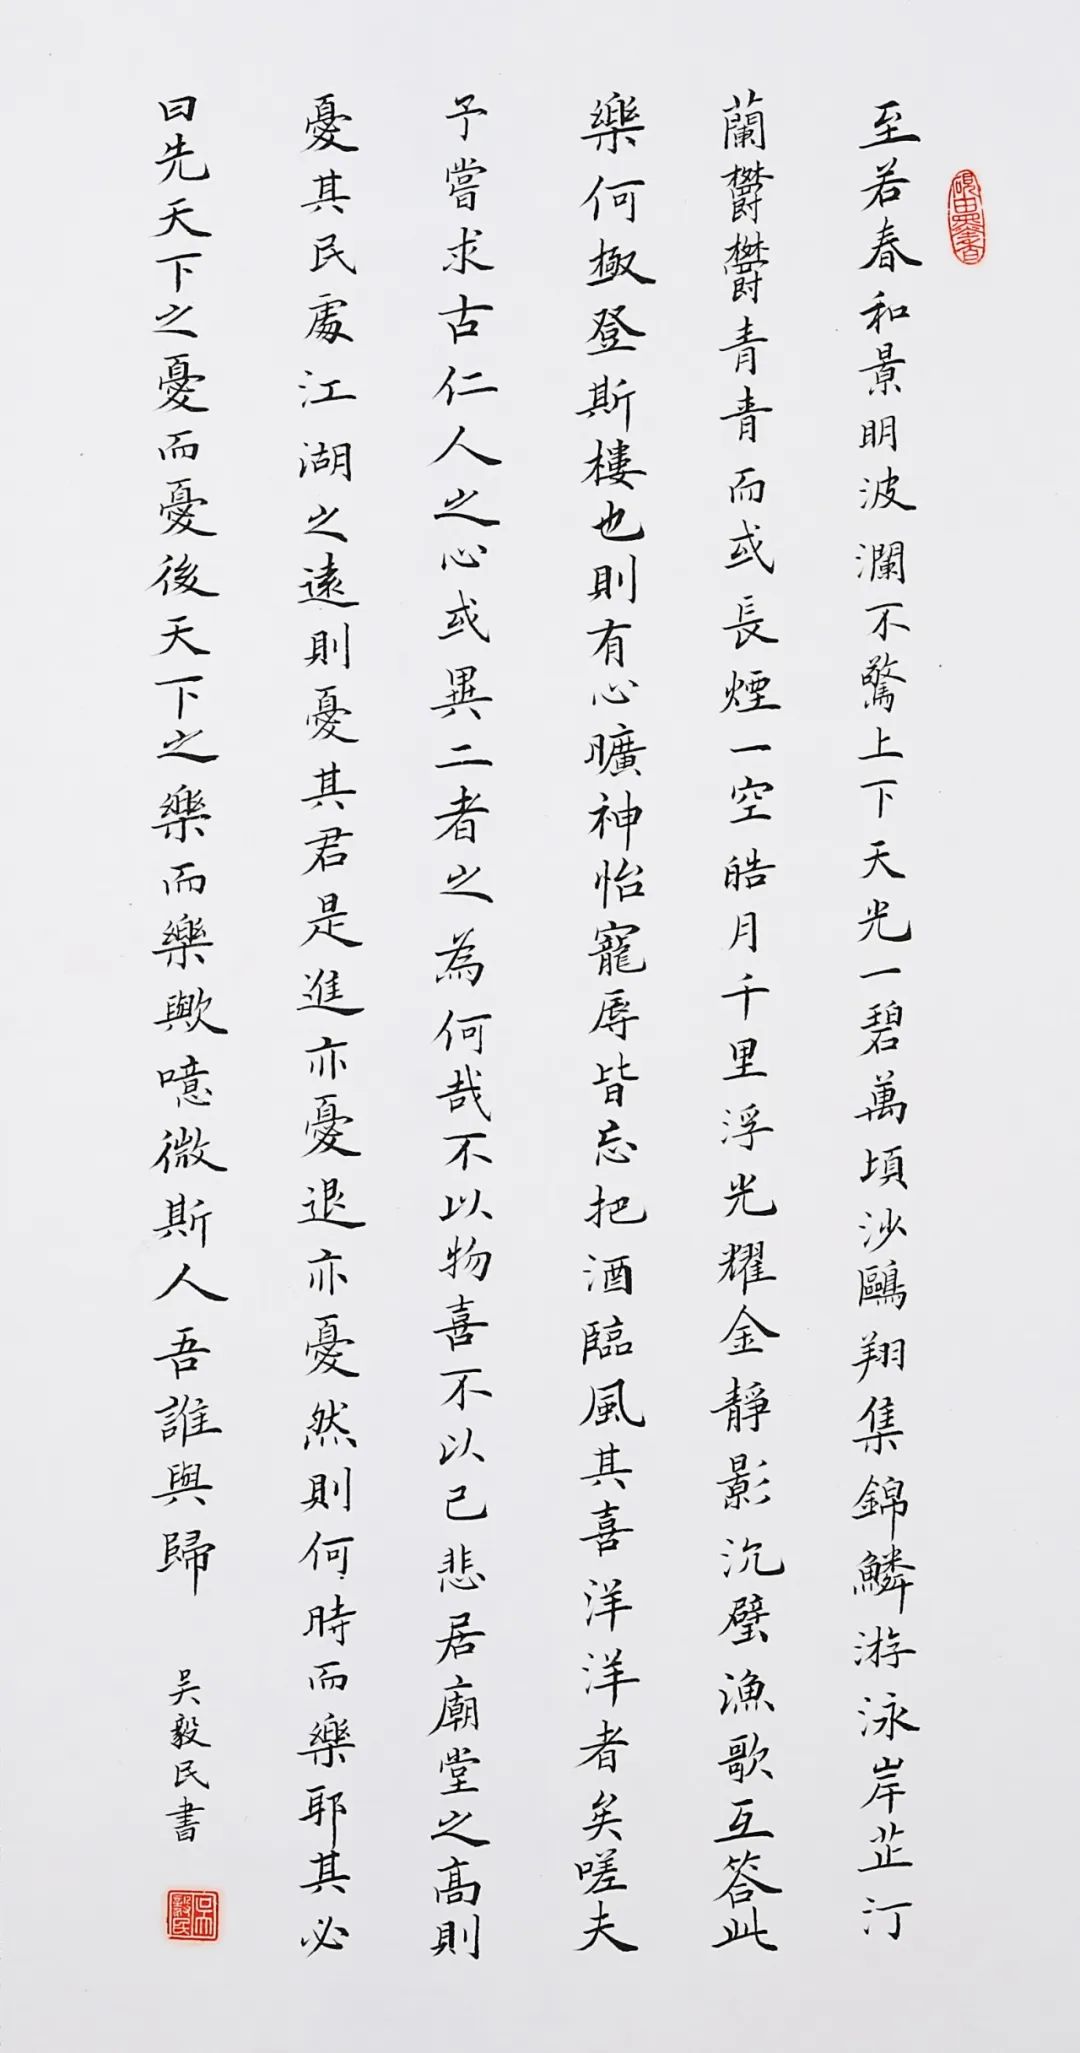 至若春和景明波瀾不驚上下天光一碧萬頃沙鷗翔集錦鱗游泳岸芷汀
蘭鬱鬱青青而或長煙一空皓月千里浮光耀金靜影沉璧漁歌互答此
樂何極登斯樓也則有心曠神怡寵辱皆忘把酒臨風其喜洋洋者矣嗟夫
予嘗求古仁人之心或異二者之為何哉不以物喜不以己悲居廟堂之高則
憂其民處江湖之遠則憂其君是進亦憂退亦憂然則何時而樂耶其必
曰先天下之憂而憂後天下之樂而樂歟噫微斯人吾誰與歸
吳毅民書